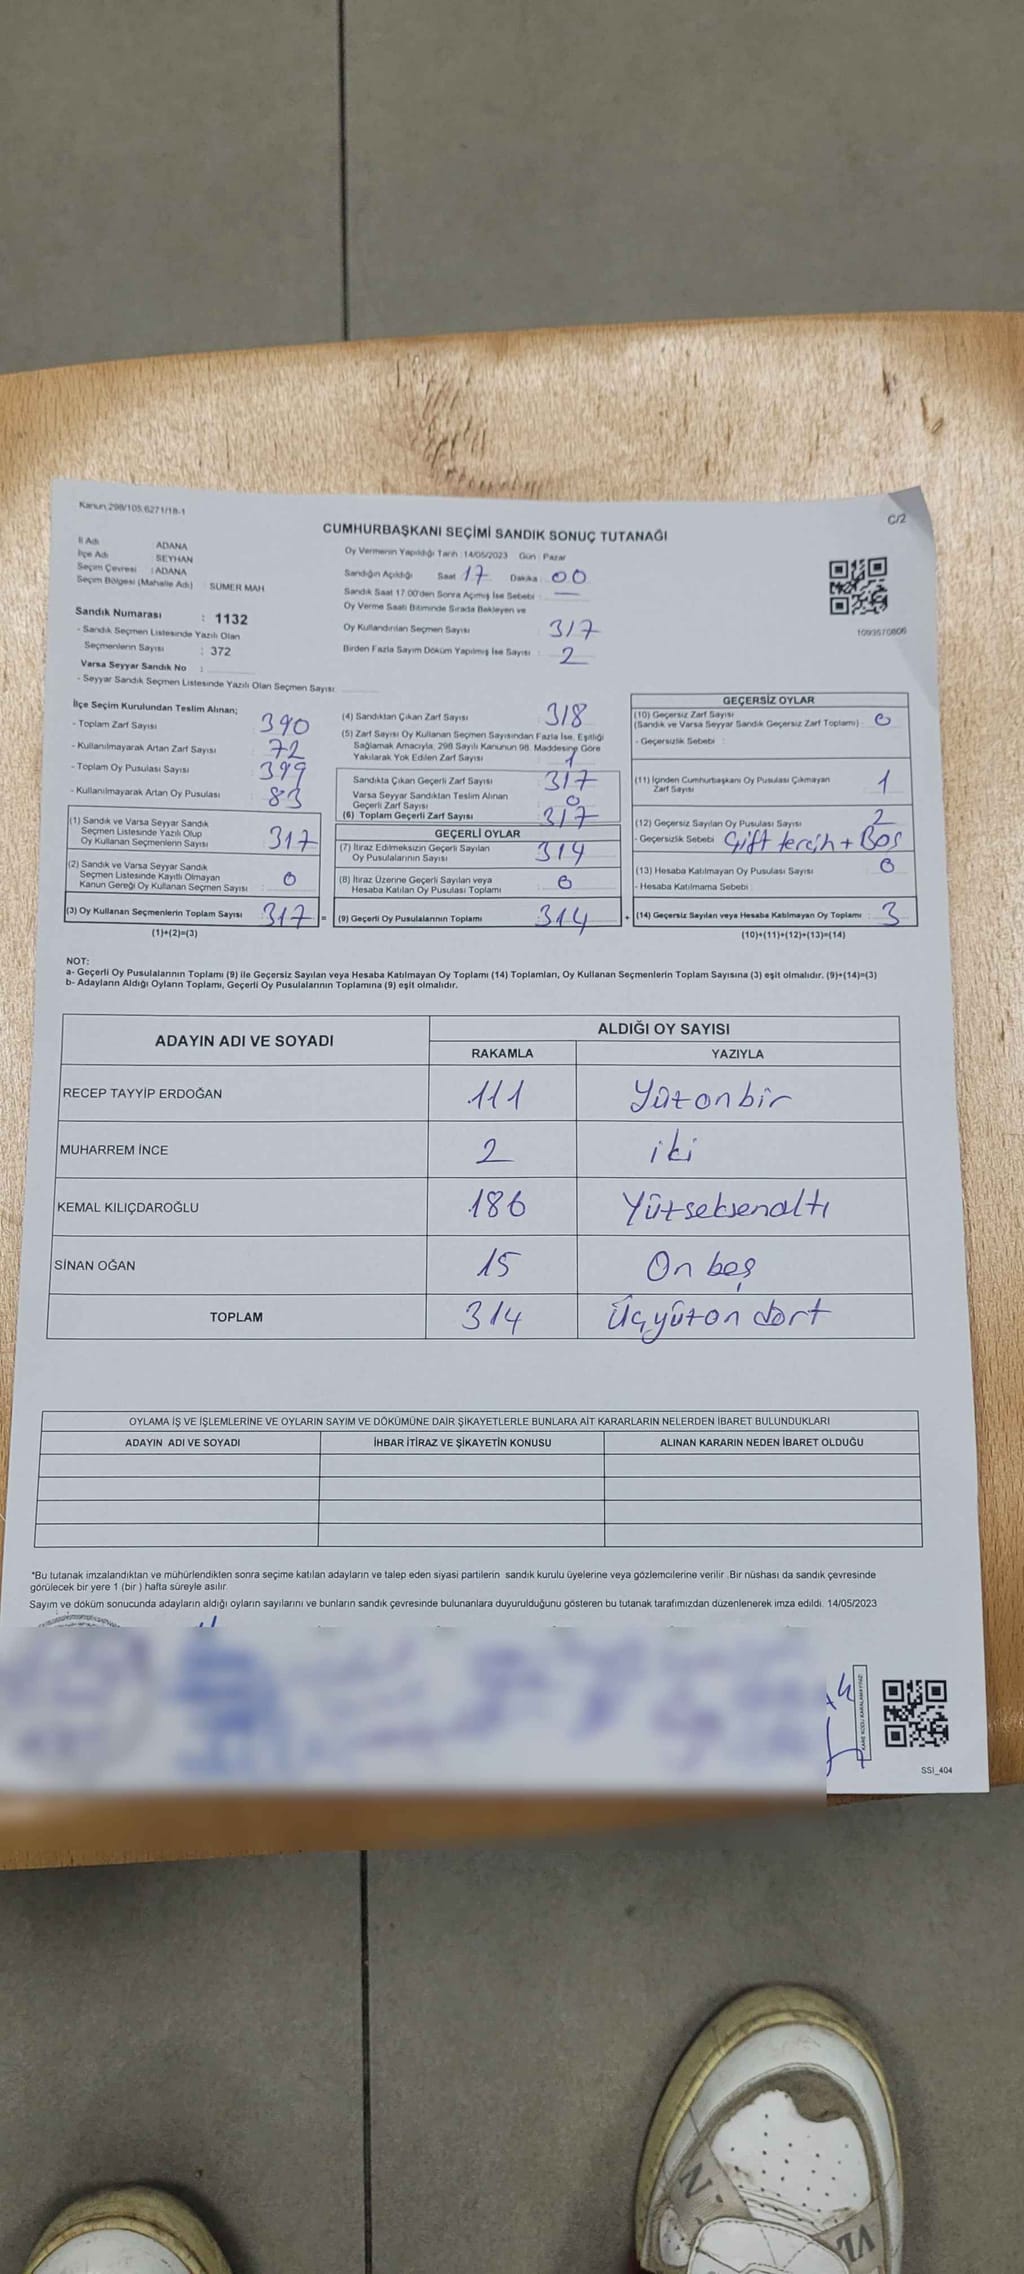 Kanun 298/105,6271/18-1
C/2
CUMHURBAŞKANI SEÇİMİ SANDIK SONUÇ TUTANAĞI
İl Adı ADANA
İlçe Adı SEYHAN
Seçim Çevresi : ADANA
Seçim Bölgesi (Mahalle Adı) : SÜMER MAH
Sandık Numarası : 1132
- Sandık Seçmen Listesinde Yazılı Olan
Seçmenlerin Sayısı : 372
Varsa Seyyar Sandık No :
- Seyyar Sandık Seçmen Listesinde Yazılı Olan Seçmen Sayısı:
Oy Vermenin Yapıldığı Tarih : 14/05/2023 Gün : Pazar
Sandığın Açıldığı Saat 17 Dakika : 00
Sandık Saat 17.00'den Sonra Açılmış İse Sebebi : —
Oy Verme Saati Bitiminde Sırada Bekleyen ve
Oy Kullandırılan Seçmen Sayısı : 317
Birden Fazla Sayım Döküm Yapılmış İse Sayısı : 2
1093570806
İlçe Seçim Kurulundan Teslim Alınan;
- Toplam Zarf Sayısı 390
- Kullanılmayarak Artan Zarf Sayısı 72
- Toplam Oy Pusulası Sayısı 399
- Kullanılmayarak Artan Oy Pusulası 83
(1) Sandık ve Varsa Seyyar Sandık
Seçmen Listesinde Yazılı Olup
Oy Kullanan Seçmenlerin Sayısı 317
(2) Sandık ve Varsa Seyyar Sandık
Seçmen Listesinde Kayıtlı Olmayan
Kanun Gereği Oy Kullanan Seçmen Sayısı 0
(3) Oy Kullanan Seçmenlerin Toplam Sayısı 317 =
(1)+(2)=(3)
(4) Sandıktan Çıkan Zarf Sayısı 318
(5) Zarf Sayısı Oy Kullanan Seçmen Sayısından Fazla İse, Eşitliği
Sağlamak Amacıyla, 298 Sayılı Kanunun 98. Maddesine Göre
Yakılarak Yok Edilen Zarf Sayısı 1
Sandıkta Çıkan Geçerli Zarf Sayısı 317
Varsa Seyyar Sandıktan Teslim Alınan
Geçerli Zarf Sayısı 0
(6) Toplam Geçerli Zarf Sayısı 317
GEÇERLİ OYLAR
(7) İtiraz Edilmeksizin Geçerli Sayılan
Oy Pusulalarının Sayısı 314
(8) İtiraz Üzerine Geçerli Sayılan veya
Hesaba Katılan Oy Pusulası Toplamı 0
(9) Geçerli Oy Pusulalarının Toplamı 314 +
GEÇERSİZ OYLAR
(10) Geçersiz Zarf Sayısı
(Sandık ve Varsa Seyyar Sandık Geçersiz Zarf Toplamı) : 0
- Geçersizlik Sebebi :
(11) İçinden Cumhurbaşkanı Oy Pusulası Çıkmayan
Zarf Sayısı 1
(12) Geçersiz Sayılan Oy Pusulası Sayısı 2
- Geçersizlik Sebebi Çift tercih + Boş
(13) Hesaba Katılmayan Oy Pusulası Sayısı 0
- Hesaba Katılmama Sebebi
(14) Geçersiz Sayılan veya Hesaba Katılmayan Oy Toplamı : 3
(10)+(11)+(12)+(13)=(14)
NOT:
a- Geçerli Oy Pusulalarının Toplamı (9) ile Geçersiz Sayılan veya Hesaba Katılmayan Oy Toplamı (14) Toplamları, Oy Kullanan Seçmenlerin Toplam Sayısına (3) eşit olmalıdır. (9)+(14)=(3)
b- Adayların Aldığı Oyların Toplamı, Geçerli Oy Pusulalarının Toplamına (9) eşit olmalıdır.
ADAYIN ADI VE SOYADI ALDIĞI OY SAYISI
RAKAMLA YAZIYLA
RECEP TAYYİP ERDOĞAN 111 Yüzonbir
MUHARREM İNCE 2 iki
KEMAL KILIÇDAROĞLU 186 Yüzseksenaltı
SİNAN OĞAN 15 On beş
TOPLAM 314 Üçyüzon dört
OYLAMA İŞ VE İŞLEMLERİNE VE OYLARIN SAYIM VE DÖKÜMÜNE DAİR ŞİKAYETLERLE BUNLARA AİT KARARLARIN NELERDEN İBARET BULUNDUKLARI
ADAYIN ADI VE SOYADI İHBAR İTİRAZ VE ŞİKAYETİN KONUSU ALINAN KARARIN NEDEN İBARET OLDUĞU
*Bu tutanak imzalandıktan ve mühürlendikten sonra seçime katılan adayların ve talep eden siyasi partilerin sandık kurulu üyelerine veya gözlemcilerine verilir. Bir nüshası da sandık çevresinde
görülecek bir yere 1 (bir ) hafta süreyle asılır.
Sayım ve döküm sonucunda adayların aldığı oyların sayılarını ve bunların sandık çevresinde bulunanlara duyurulduğunu gösteren bu tutanak tarafımızdan düzenlenerek imza edildi. 14/05/2023
KARE KODU KARALAMAYINIZ!
SSI_404